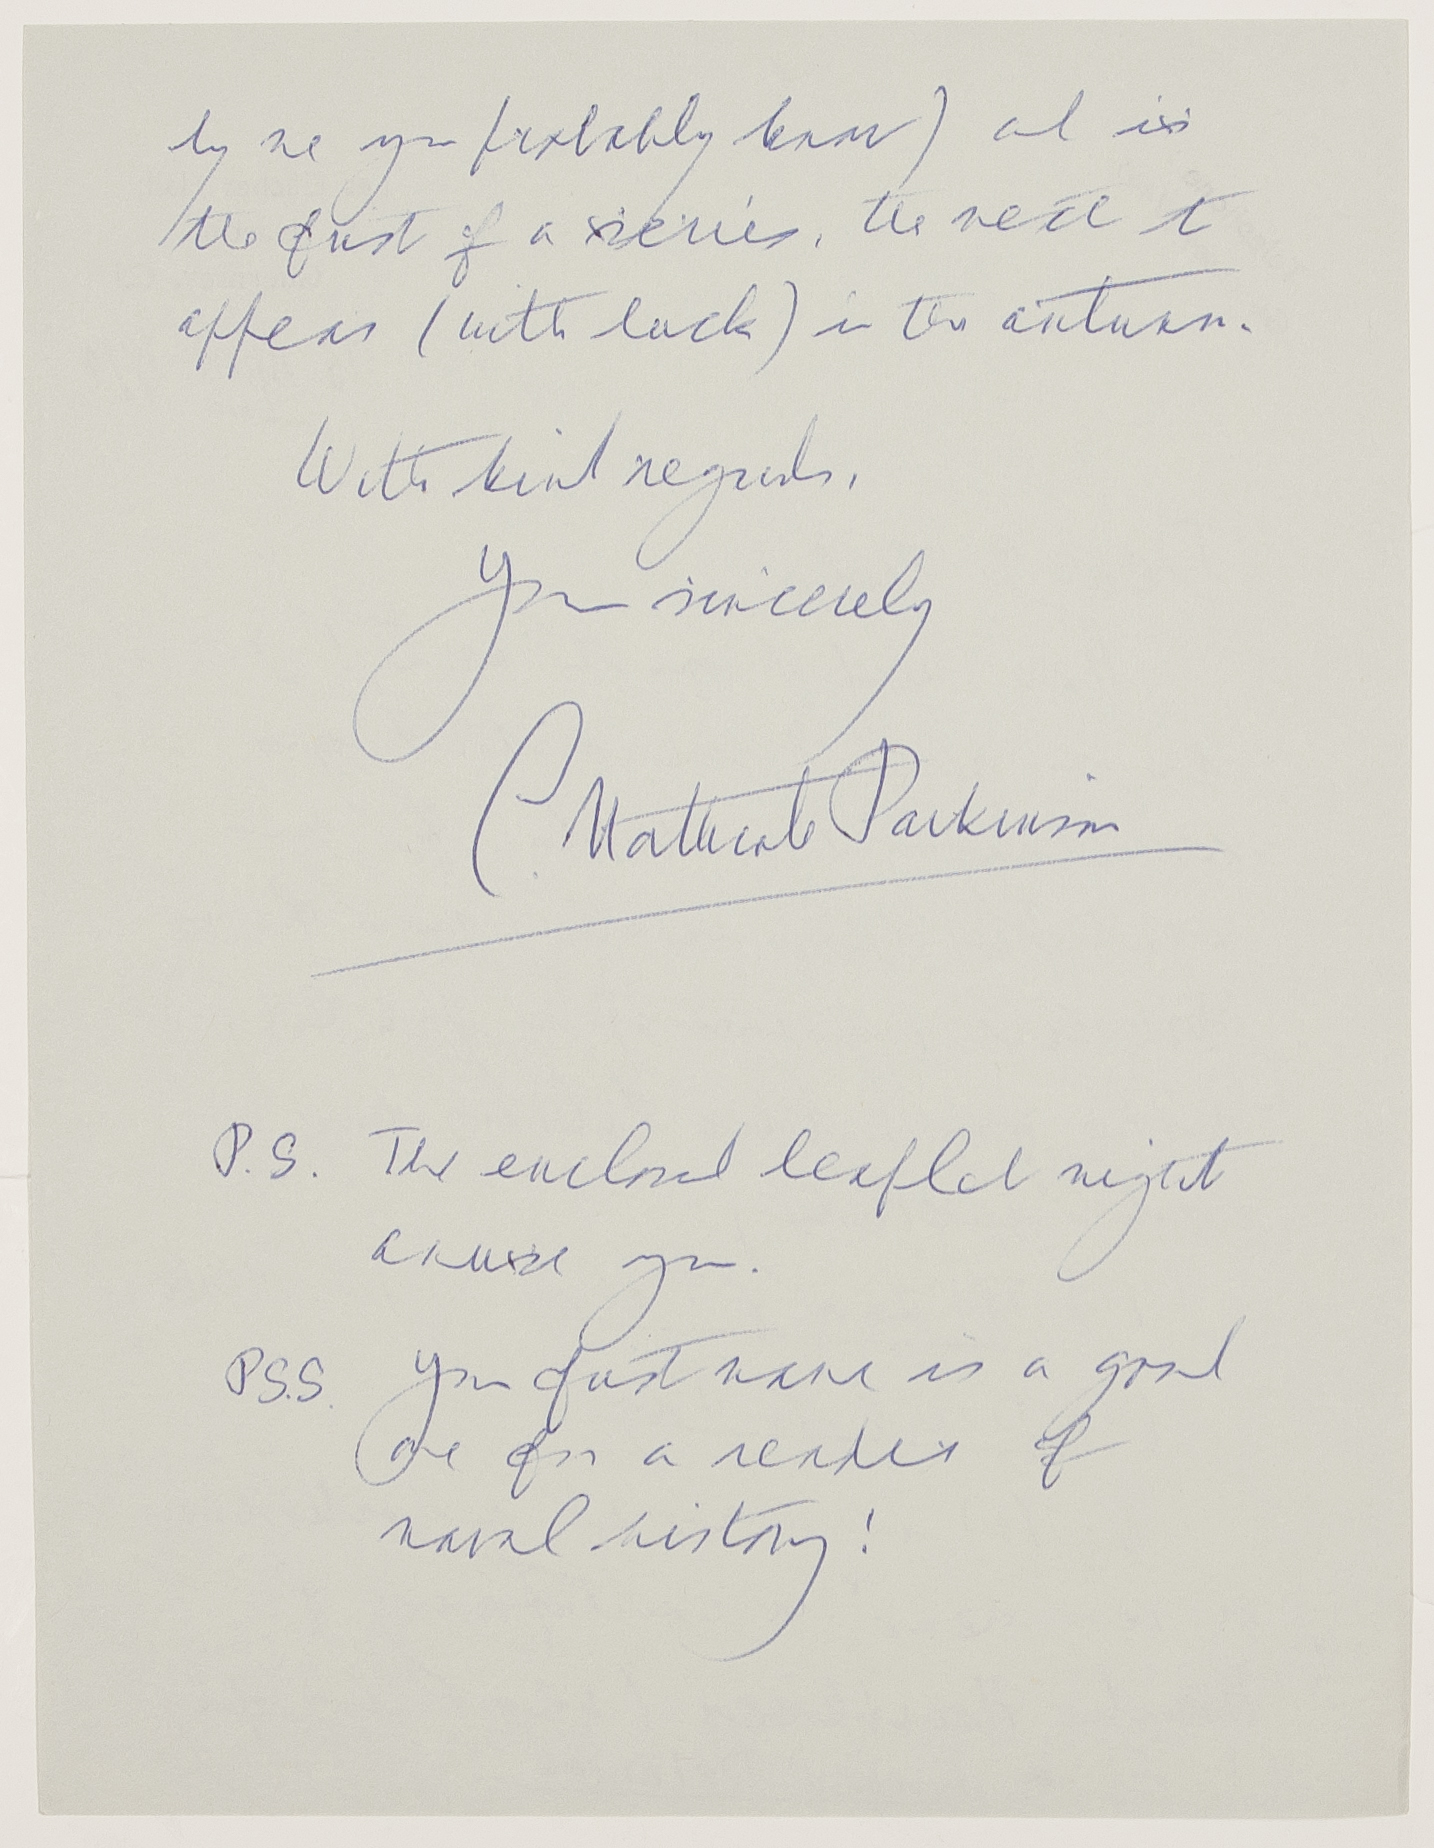 by me you probably know) and is
the first of a series, the next to
appear (with luck) in the autumn.
With kind regards,
Your sincerely
C. Northcote Parkinson
P.S. The enclosed leaflet might
amuse you.
PS.S. Your first name is a good
one for a reader of
naval history!